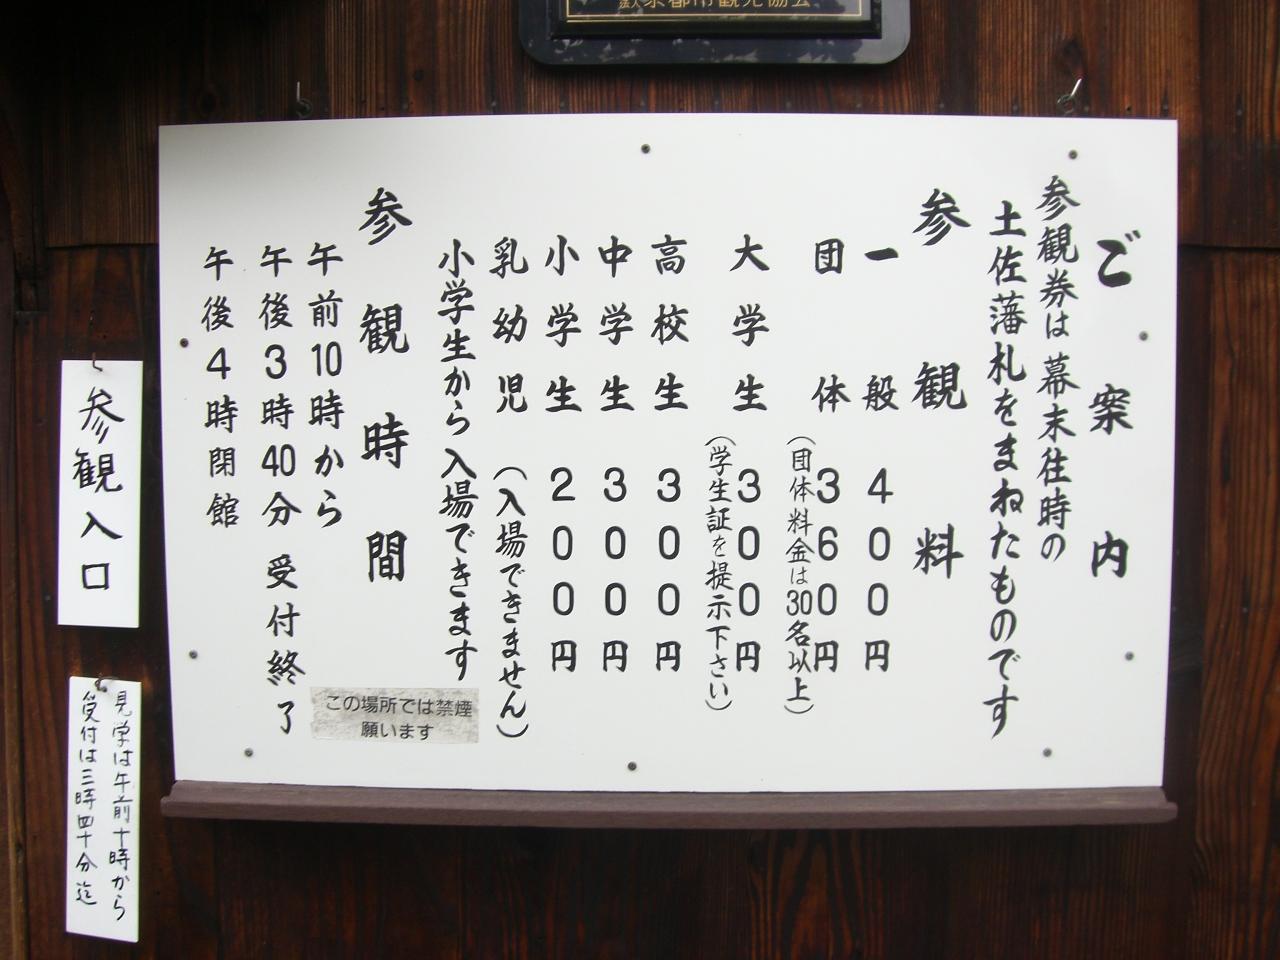 京都市観光協会
ご案内
参観券は幕末往時の
土佐藩札をまねたものです
参観料
一般 400円
団体 360円
(団体料金は30名以上)
大学生 300円
(学生証を提示下さい)
高校生 300円
中学生 300円
小学生 200円
乳幼児 (入場できません)
小学生から入場できます
参観時間
午前10時から
午後3時40分 受付終了
午後4時閉館
この場所では禁煙
願います
参観入口
見学は午前十時から
受付は三時四十分迄